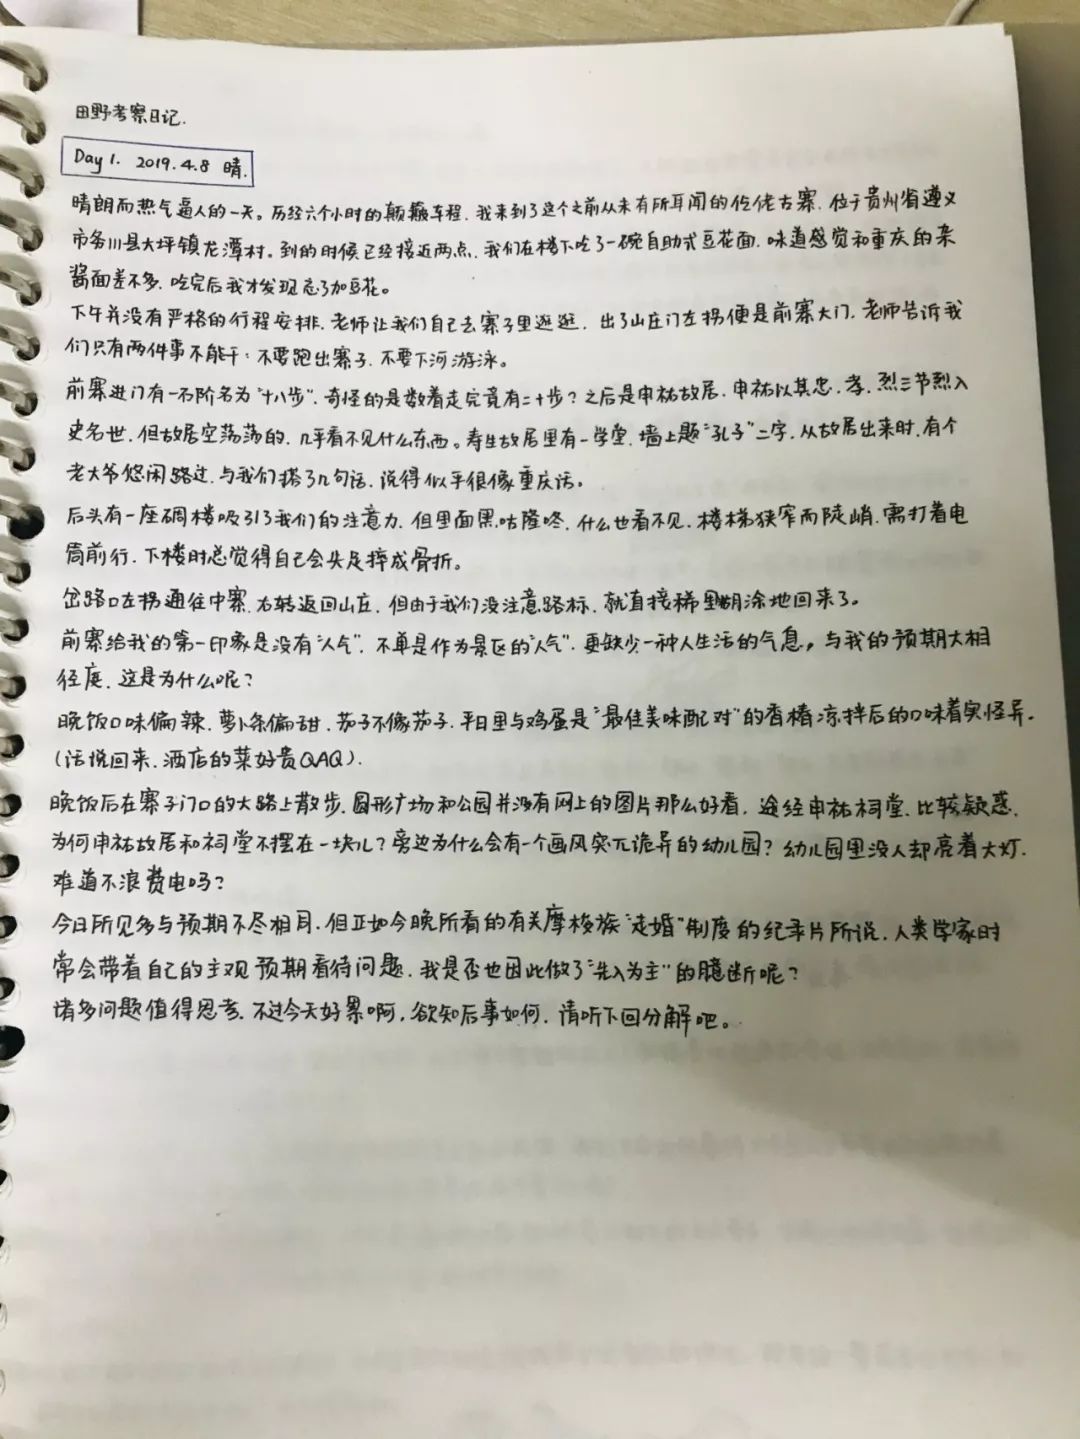 田野考察日记.
Day 1. 2019.4.8 晴.
晴朗而热气逼人的一天。历经六个小时的颠簸车程,我来到了这个之前从未有所耳闻的仡佬古寨,位于贵州省遵义
市务川县大坪镇龙潭村。到的时候已经接近两点,我们在楼下吃了一碗自助式豆花面,味道感觉和重庆的杂
酱面差不多,吃完后我才发现忘了加豆花。
下午并没有严格的行程安排,老师让我们自己去寨子里逛逛,出了山庄门左拐便是前寨大门,老师告诉我
们只有两件事不能干:不要跑出寨子,不要下河游泳。
前寨进门有一石阶名为“十八步”,奇怪的是数着走完竟有二十步?之后是申祐故居,申祐以其忠、孝、烈三节烈入
史名世,但故居空荡荡的,几乎看不见什么东西。寿生故居里有一学堂,墙上题“孔子”二字,从故居出来时,有个
老大爷悠闲路过,与我们搭了几句话,说得似乎很像重庆话。
后头有一座碉楼吸引了我们的注意力,但里面黑咕隆咚,什么也看不见,楼梯狭窄而陡峭,需打着电
筒前行,下楼时总觉得自己会失足摔成骨折。
岔路口左拐通往中寨,右转返回山庄,但由于我们没注意路标,就直接稀里糊涂地回来了。
前寨给我的第一印象是没有“人气”,不单是作为景区的“人气”,更缺少一种人生活的气息,与我的预期大相
径庭,这是为什么呢?
晚饭口味偏辣,萝卜条偏甜,茄子不像茄子,平日里与鸡蛋是“最佳美味配对”的香椿凉拌后的口味着实怪异.
(话说回来,酒店的菜好贵QAQ).
晚饭后在寨子门口的大路上散步,圆形广场和公园并没有网上的图片那么好看,途经申祐祠堂,比较疑惑,
为何申祐故居和祠堂不摆在一块儿?旁边为什么会有一个画风突兀诡异的幼儿园?幼儿园里没人却亮着大灯,
难道不浪费电吗?
今日所见多与预期不尽相同,但正如今晚所看的有关摩梭族“走婚”制度的纪录片所说,人类学家时
常会带着自己的主观预期看待问题,我是否也因此做了“先入为主”的臆断呢?
诸多问题值得思考,不过今天好累啊,欲知后事如何,请听下回分解吧。